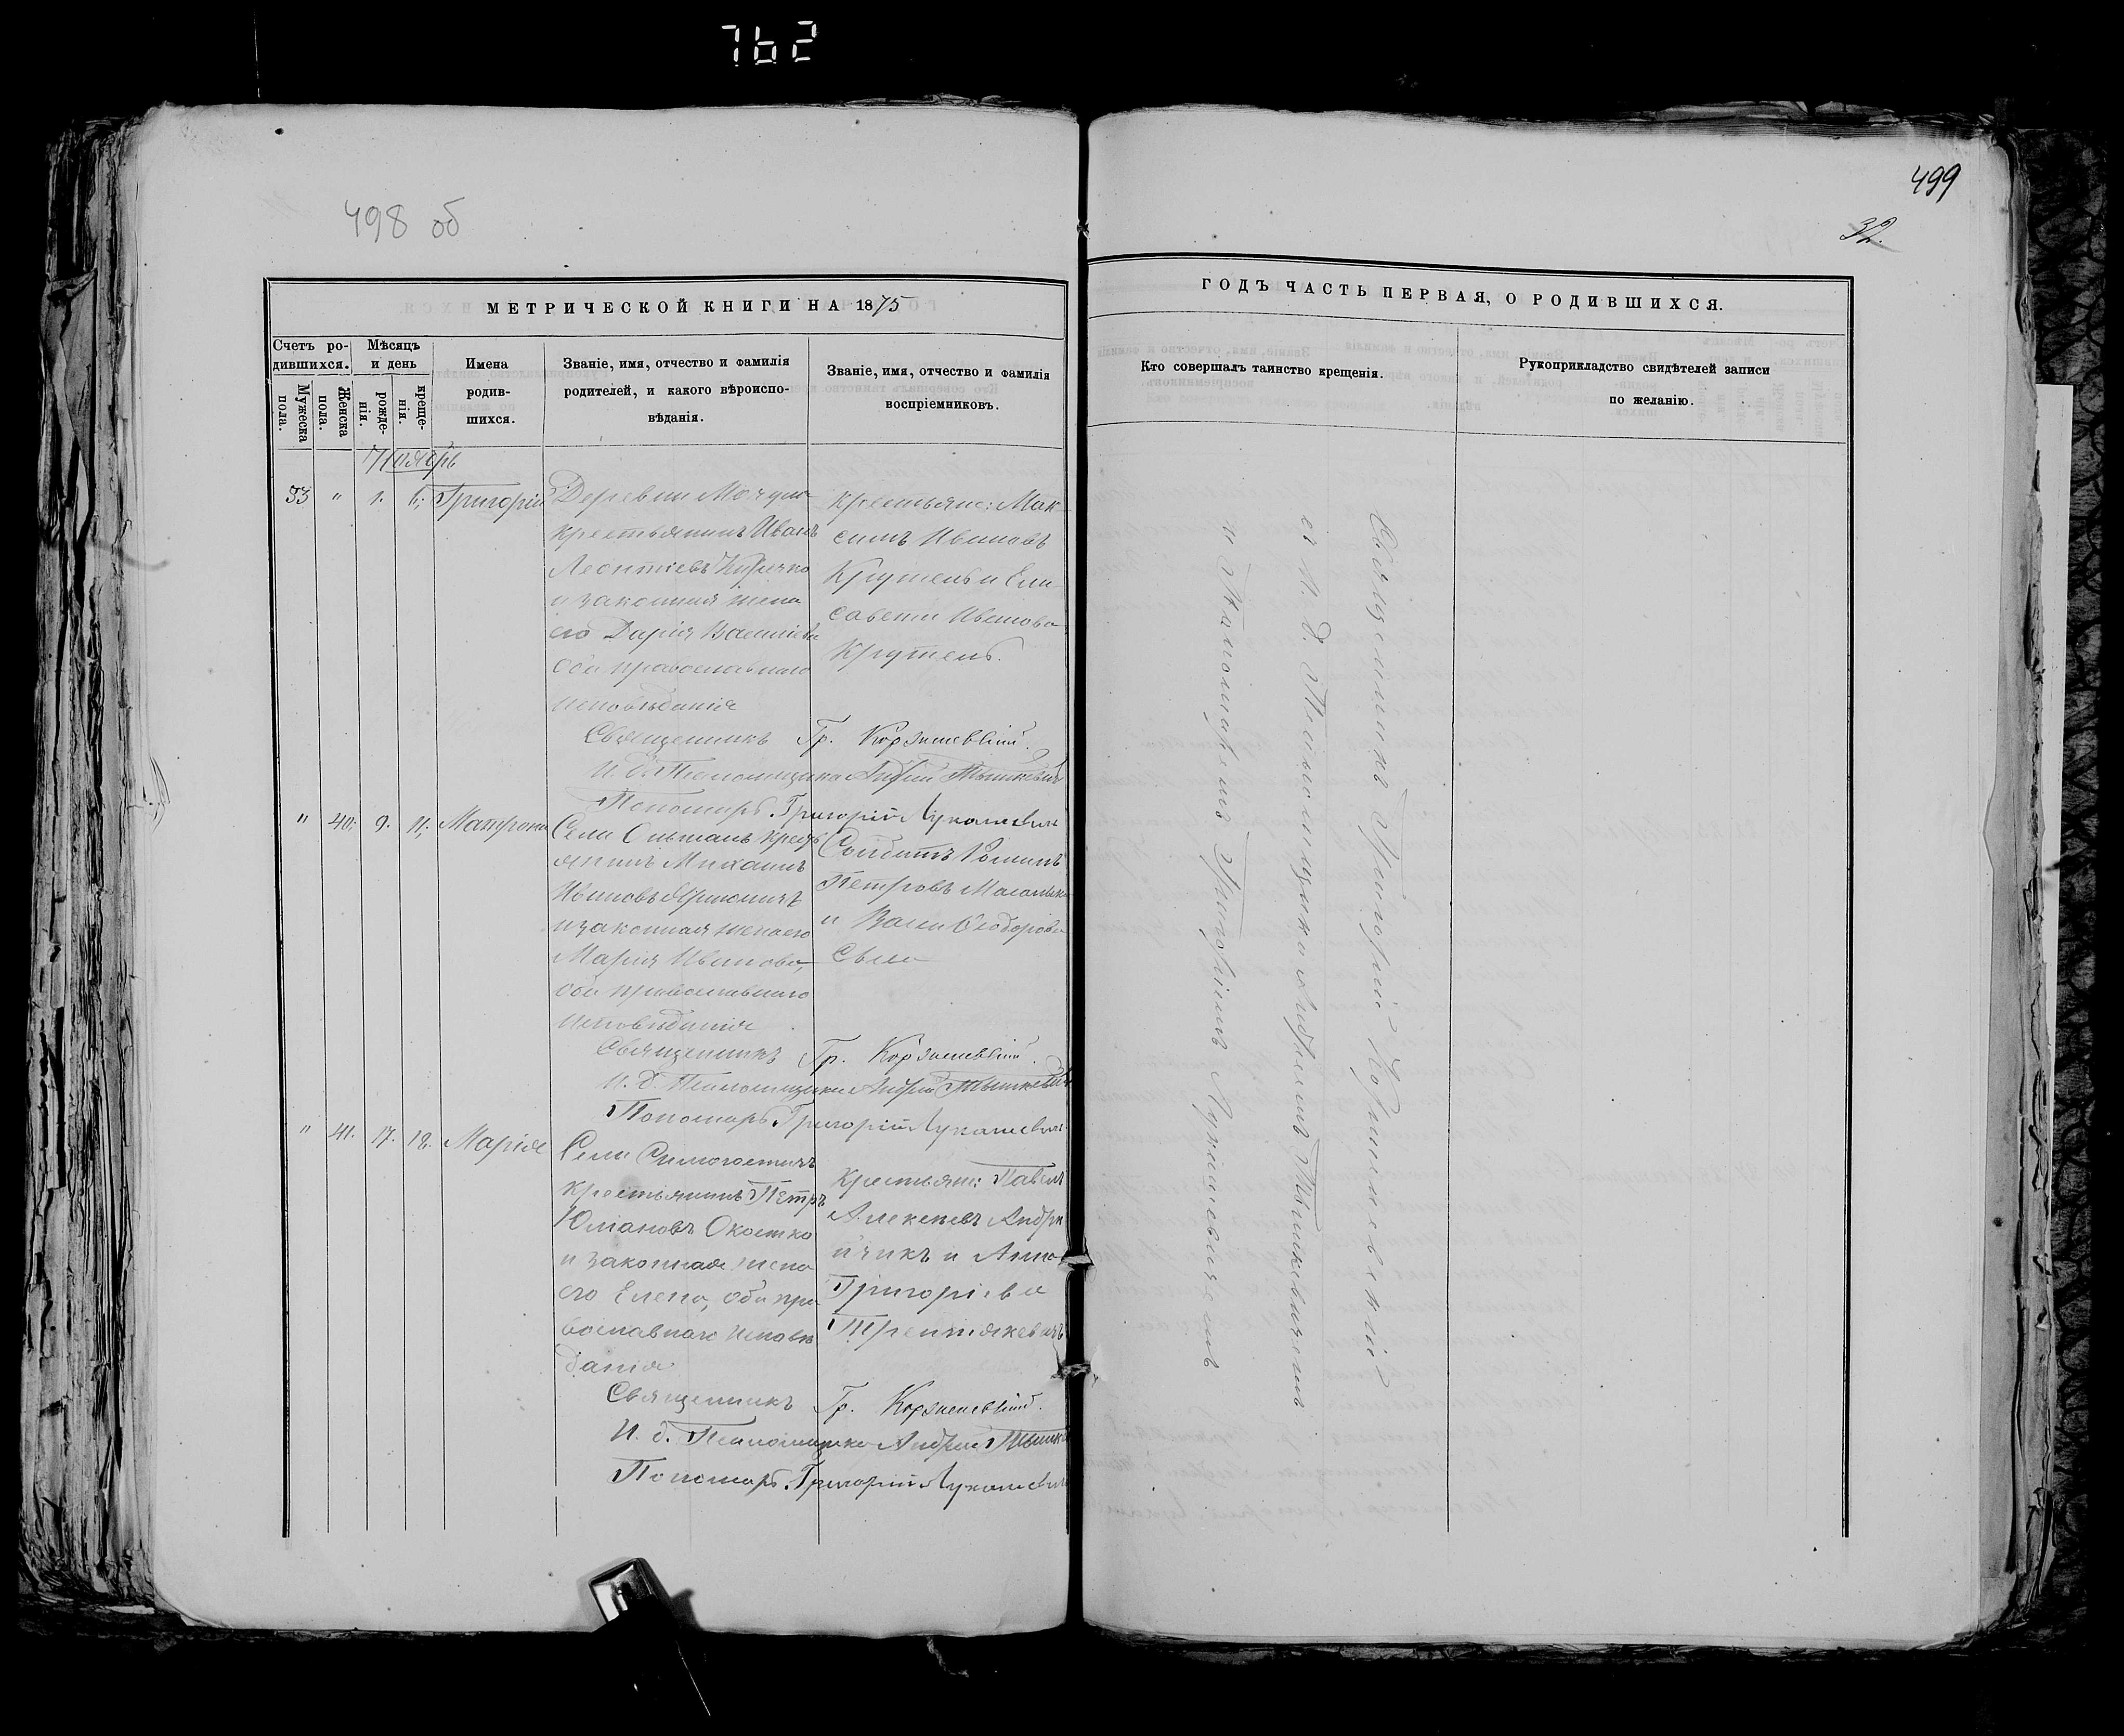 762
498 об
499
32.
МЕТРИЧЕСКОЙ КНИГИ НА 1875
ГОДЪ ЧАСТЬ ПЕРВАЯ, О РОДИВШИХСЯ.
Счетъ ро-
дившихся.
Мужеска
пола.
Женска
пола.
Мѣсяцъ
и день
рожде-
нія.
креще-
нія.
Имена
родив-
шихся.
Званіе, имя, отчество и фамилія
родителей, и какого вѣроиспо-
вѣданія.
Званіе, имя, отчество и фамилія
воспріемниковъ.
Кто совершалъ таинство крещенія.
Рукоприкладство свидѣтелей записи
по желанію.
Ноябрь
33 " 1. 6; Григорій
Деревни
крестьянинъ Иванъ
Леонтіевъ
и законная жена
его Дарія Василіева
оба православнаго
исповѣданія
Крестьяне: Мак-
симъ Ивановъ
Крутень и Ели-
савета Иванова
Крутень.
Священникъ Гр.
И. д. Псаломщика Андрей Тышкевичъ
Пономарь Григорій Лукашевичъ
" 40. 9. 11; Матрона
Села Ольманъ крестъ
янинъ Михаилъ
Ивановъ
и законная жена его
Марія Иванова,
оба православнаго
исповѣданія
Солдатъ Романъ
Петровъ
и Ѳеодорова
Священникъ Гр.
И. д. Псаломщика Андрей Тышкевичъ
Пономарь Григорій Лукашевичъ
" 41. 17. 18. Марія
Села
крестьянинъ Петръ
Юліановъ
и законная жена
его Елена, оба пра
вославнаго исповѣ
данія
Крестьяне: Павелъ
Алексѣевъ Андре
йчикъ и Анна
Григоріева
Священникъ Гр.
И. д. Псаломщика Андрей
Пономарь Григорій Лукашевичъ
Священникъ Григорій
съ И. д. Псаломщика Андреемъ Тышкевичемъ
и Пономаремъ Григоріемъ Лукашевичемъ